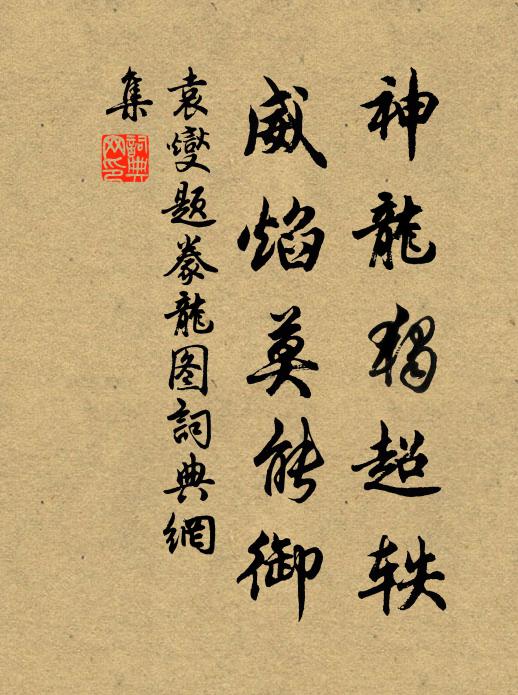 神龍獨超軼
威焰莫能御
袁燮題豢龍图詞典網
集
詞典網印